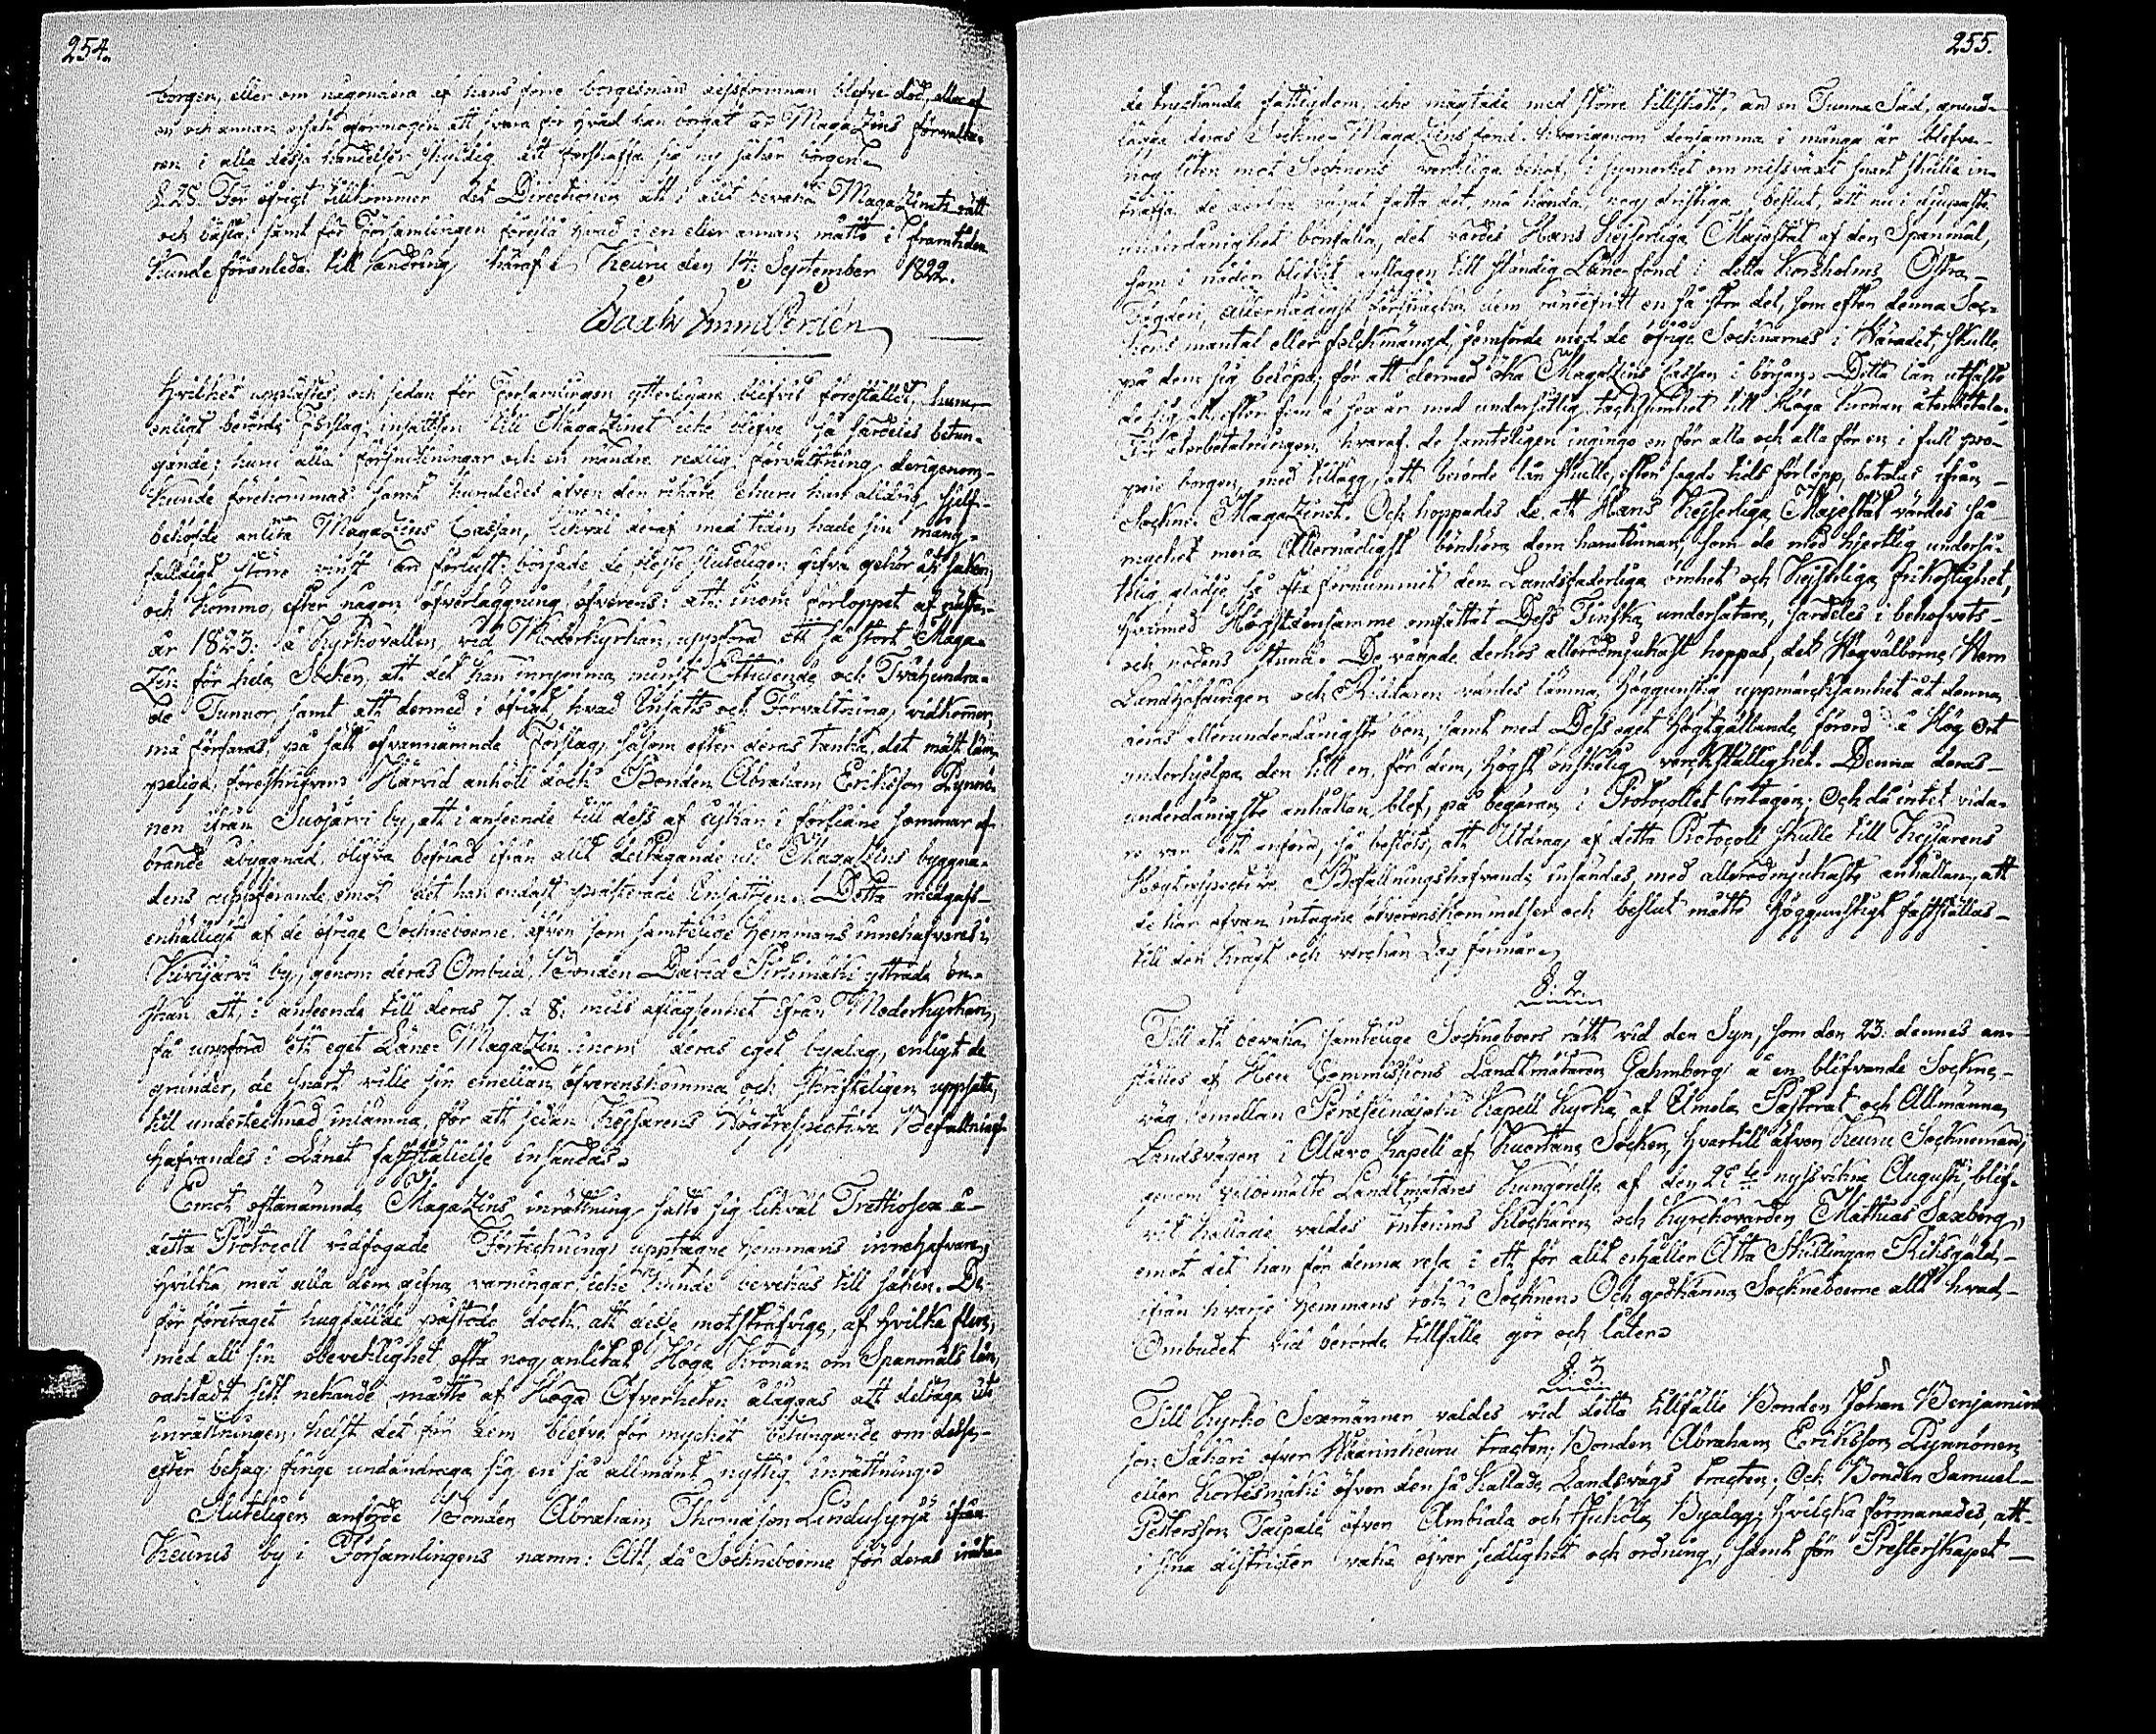 254.
borgen, eller om någondera af hans förre borgesmän dessförinnan blefve död, eller af
en och annan orsak oförmögen att svara för hvad han borgat är Magazins förvalta-
ren i alla dessa händelser skyldig att förskaffa sig ny säker borgen.
§. 28. För öfrigt tillkommer det Directionen att i allt bevaka Magazinets rätt
och bästa, samt för Församlingen föreslå hvad i en eller annan måtto i framtiden
kunde föranleda till ändring häraf. Keuru den 14: September 1822.
Hvilket upplästes, och sedan för Församlingen ytterligare blifvit föreställdt, huru
enligt berörde Förslag insättsen till Magazinet icke blefve så särdeles betun-
gande; huru alla försnillningar och en mindre redlig förvaltning derigenom
kunde förekommas: samt huruledes äfven den rikare ehuru han aldrig sjelf
behöfde anlita Magazins Cassan, likväl deraf med tiden hade sin mång-
faldigt större vinst än förlust: började de fleste sluteligen gifva gehör åt saken,
och kommo, efter någon öfverläggning öfverens: att inom förloppet af nästa
år 1823: å Kyrkovallen, vid Moderkyrkan, uppföra ett så stort Maga-
zin för hela Socken, att det kan inrymma minst Ettusende och Tvåhundra-
de Tunnor, samt att dermed i öfrigt hvad Insatts och Förvaltning vidkommer,
må förfaras, på sätt ofvannämnde Förslag, såsom efter deras tanka, det mäst läm-
peliga, föreskrifver. Härvid anhöll dock Bonden Abraham Eriksson Pynnö-
nen ifrån Suojärvi by, att i anseende till dess af åskan i förflutne sommar af-
brände åbyggnad, blifva befriad ifrån allt deltagande i Magazins byggna-
dens uppförande, emot det han endast presterade Insattsen. Detta medgafs
enhälligt af de öfrige Sockneboerne: äfven som samtelige Hemmans innehafvare i
Kivijärvi by, genom deras Ombud, Bonden David Pirttimäki yttrade ön-
skan att, i anseende till deras 7. à 8. mils aflägsenhet ifrån Moderkyrkan,
få uppföra ett eget Låne Magazin inom deras eget byalag, enligt de
grunder, de snart ville sin emellan öfverenskomma och skrifteligen uppsatte,
till undertecknad inlämna, för att sedan Kejsarens Högtrespective Befallnings-
hafvandes i Länet fastställelse insändas.
Emot oftanämnde Magazins inrättning satte sig likväl Trettiosex å
detta Protocoll vidfogade Förteckning upptagne Hemmans innehafvare,
hvilka, med alla dem gifna varningar, icke kunde bevekas till saken. De
för företaget hugfällde påstodo dock, att desse motsträfvige, af hvilka flere,
med all sin obeveklighet, ofta nog anlitat Höga Kronan om Spanmåls lån,
oaktadt sitt nekande, måtte af Höga Öfverheten åläggas att deltaga i
inrättningen, helst det för dem blefve för mycket betungande om desse,
efter behag finge undandraga sig en så allmänt nyttig inrättning.
Sluteligen anförde Bonden Abraham Thomasson Lindusyrjä ifrån
Keurus by i Församlingens namn: Att, då Sockneboerne för deras
255.
de tryckande fattigdom, icke mägtade med större tillskott, än en Tunna Säd, grund-
lägga deras Sockne-Magazins fond, hvarigenom densamma i många år blefve
nog liten mot Socknens verkeliga behof, i synnerhet om missväxt snart skulle in-
träffa de derföre vågat fatta det, må hända, nog dristiga beslut, att nu i djupaste
underdånighet bönfalla, det värdes Hans Kejserliga Majestät af den Spanmål,
som i nåder blifvit anslagen till ständig Låne fond i detta Korsholms Östra
Fögderi, allernådigst försträcka dem räntefritt en så stor del, som efter denna Soc-
kens mantal eller folckmängd, jemförde med de öfrige Socknarnes i Häradet, skulle
på dem sig belöpa, för att dermed öka Magazins Cassan i början. Detta lån utfäste
de sig att, efter fem à sex år med undersåtlig tacksamhet till Höga Kronan återbetala.
För återbetalningen, hvaraf de samteligen ingingo en för alla, och alla för en i full pro-
prie borgen, med tillägg, att berörde lån skulle, efter sagde tids förlopp, betalas ifrån
Sockne Magazinet. Och hoppades de att Hans Kejserliga Majestät värdes så
mycket mera Allernådigst bönhöra dem harutinnan, som de med hjertlig underså-
tlig glädje, så ofta förnummit den Landsfaderliga ömhet och Kejserliga frikostighet,
hvarmed Högstdensamme omfattat Dess Finska undersåtare, särdeles i behofvets
och nödens stund. De vågade derhos allerödmjukast hoppas, det Högvälborne Herr
Landshöfdingen och Riddaren värdes lämna höggunstig uppmärcksamhet åt denna
deras allerunderdånigste bön, samt med Dess eget högtgällande förord å Hög Ort
underhjelpa den till en, för dem, högst önskelig verckställighet. Denna deras
underdånigste anhållan blef, på begäran, i Protocollet intagen. Och då intet vida-
re var att anföra, så beslöts, att Utdrag af detta Protocoll skulle till Kejsarens
Högtrespective Befallningshafvande insändas, med allerödmjukaste anhållan, att
de här ofvan intagne öfverenskommelser och beslut måtte höggunstigt fastställas
till den kraft och verckan Lag förmår.
§. 2.
Till att bevaka samtelige Sockneboers rätt vid den Syn, som den 23. dennes an-
ställes af Herr Commissions Landtmätaren Gahmberg å en blifvande Sockne-
väg emellan Peräseinäjoki Kapell Kyrka af Ilmola Pastorat och Allmänna
Landsvägen i Alavo Kapell af Kuortane Socken, hvartill äfven Keuru Socknemän,
genom välbemälte Landtmätares kungörelse af den 28de nyssvikne Augusti, blif-
vit kallade, valdes Interims Klockaren och Kyrckovärden Mathias Saxberg,
emot det han för denna resa i ett för allt erhåller Åtta Skillingar Riksgäld,
ifrån hvarje Hemmans rök i Socknen. Och godkänna Sockneboerne allt hvad
Ombudet vid berörde tillfälle gör och låter.
§. 3.
Till Kyrko Sexmänner valdes vid detta tillfälle Bonden Johan Benjamins-
son Sahari öfver Häärinkeuru tracten; Bonden Abraham Eriksson Pynnönen,
eller Kortesmäki öfver den så kallade Landsvägs tracten; Och Bonden Samuel
Pettersson Taipale öfver Ambiala och Jukola Byalag; hvilcka förmanades, att
i sina districter vaka öfver sedlighet och ordning, samt för Presterskapet